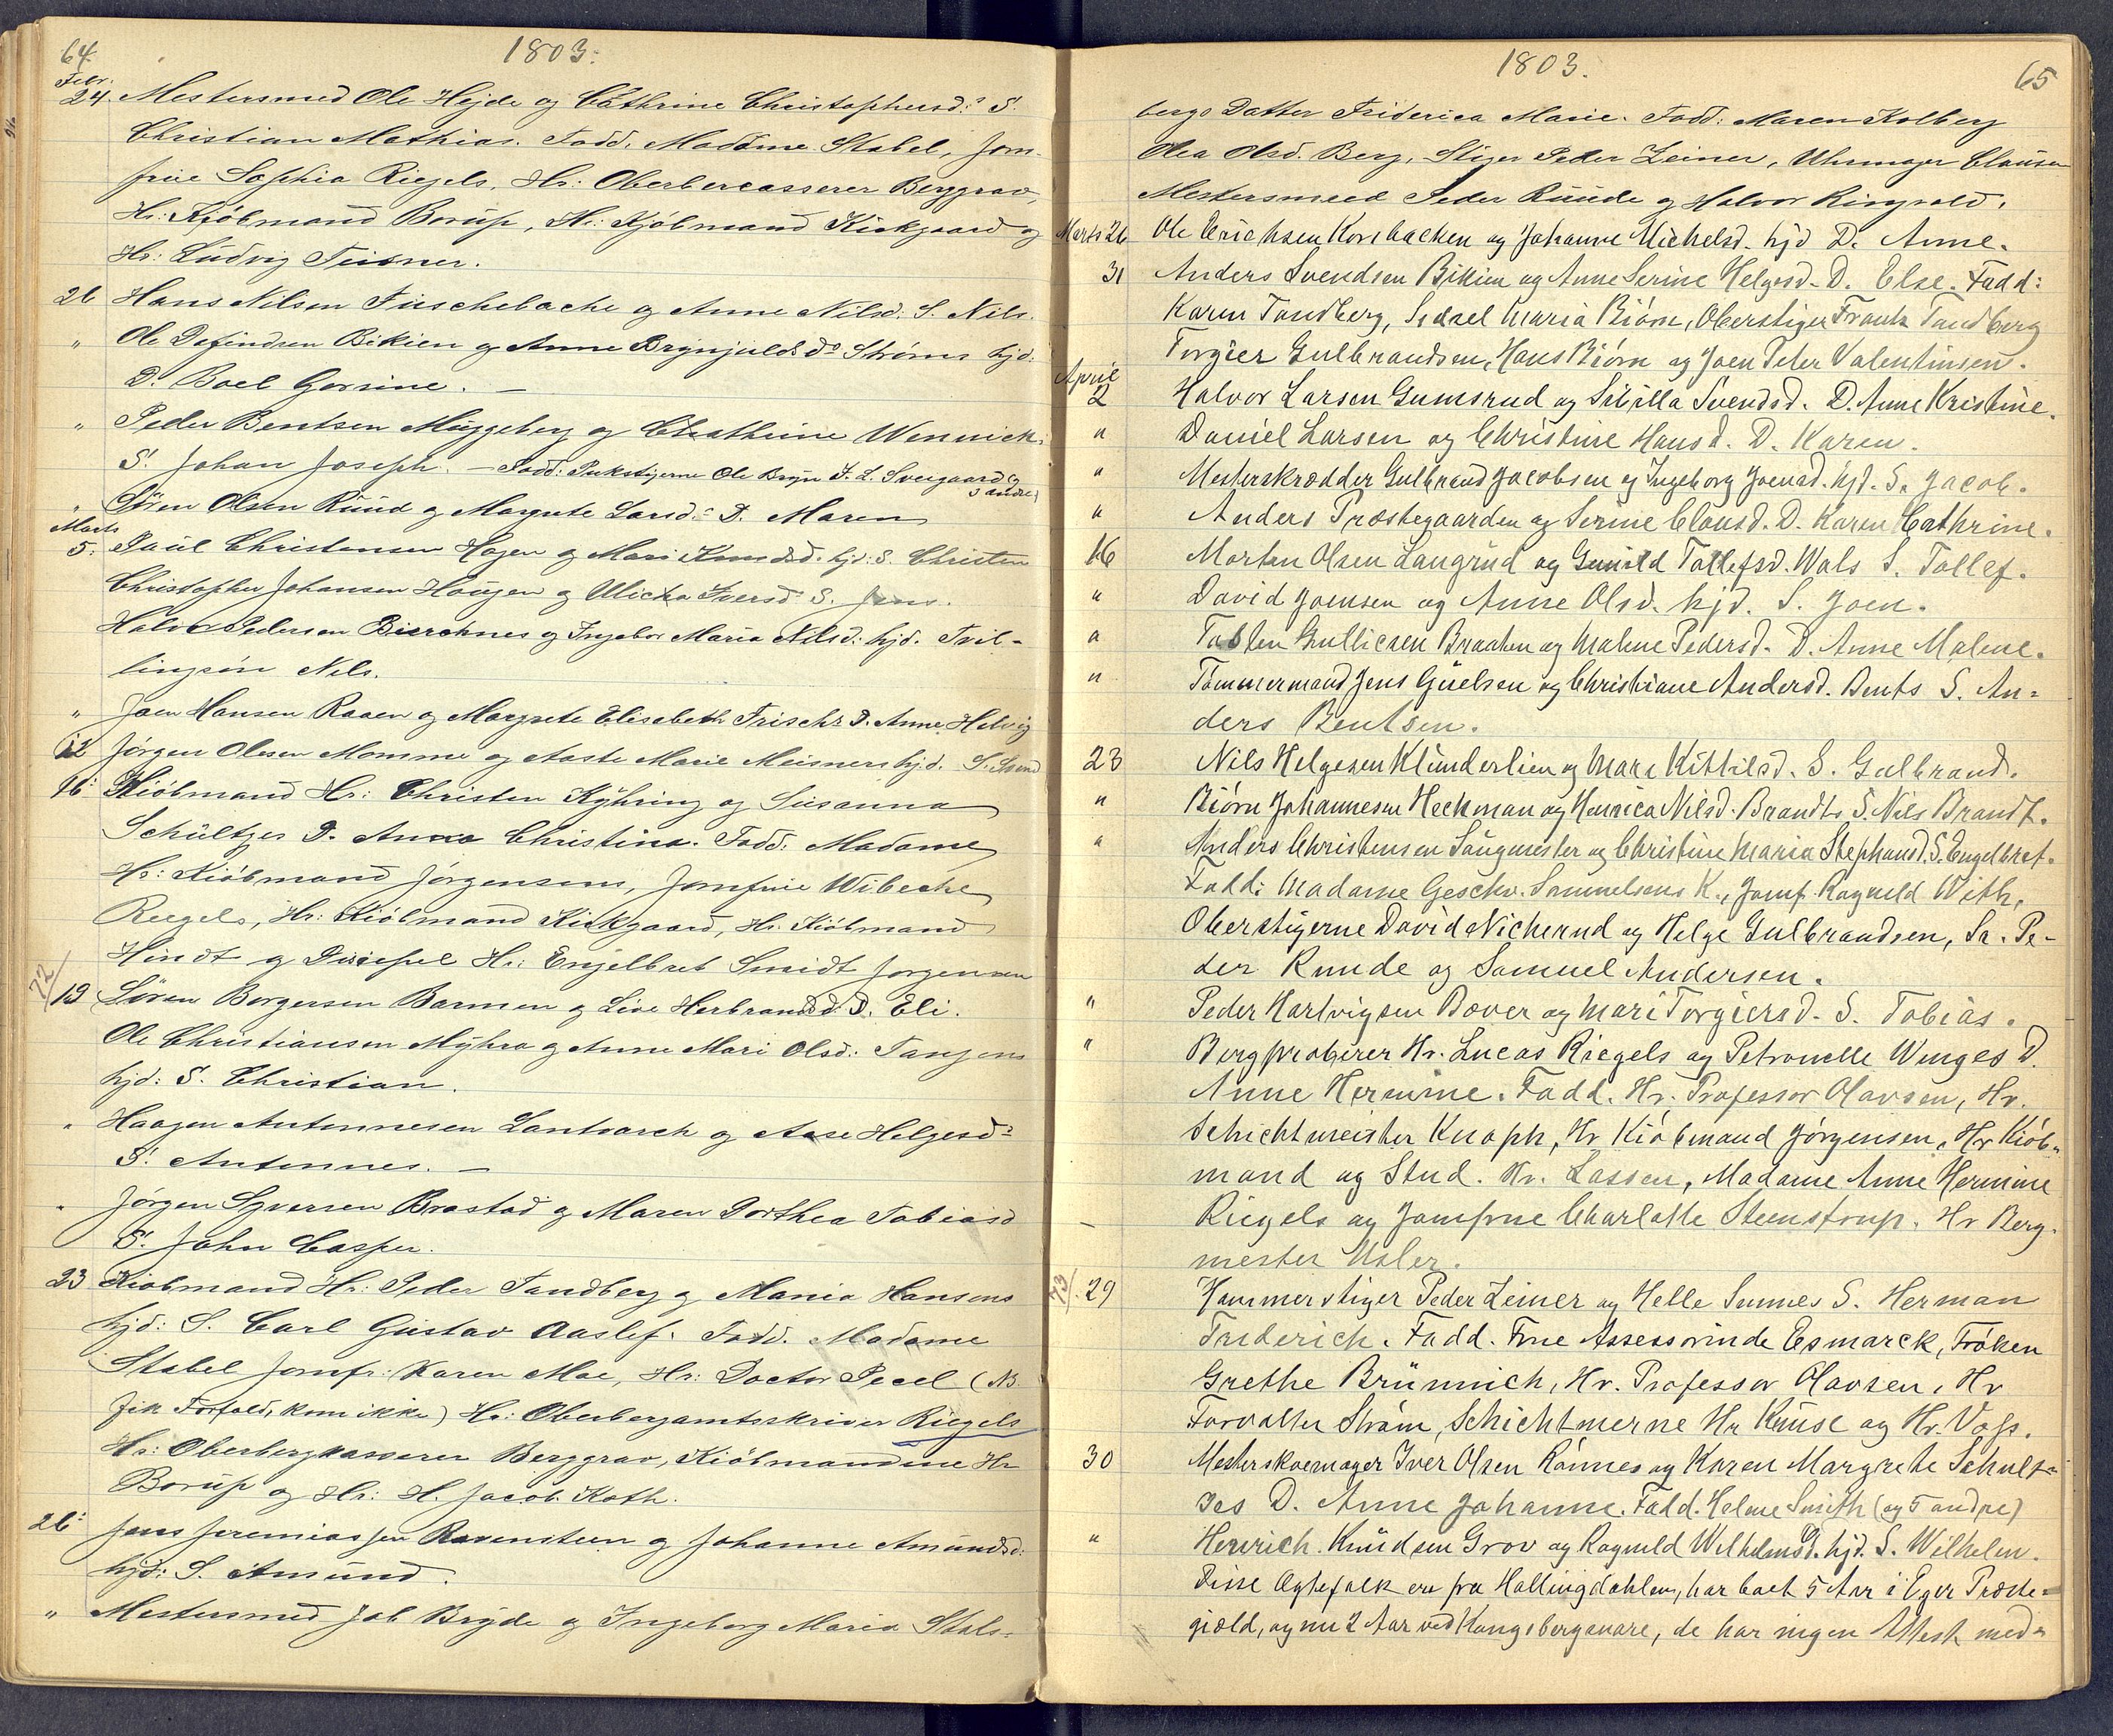 64.
1803.
Febr.
24. Mestersmed Ole Hejde og Cathrine Christophersd:s S.
Christian Mathias. Fadd. Madame Stabel, Jom-
frue Sophia Riegels, Hr: Oberbercasserer Berggrav,
Hr: Kjöbmand Borup, Hr: Kjöbmand Kirkgaard og
Hr: Ludvig Teisner.
26 Hans Nilsen Fuschebache og Anne Nilsd. S. Nils.
" Ole Dafindsen Bikien og Anne Brynjulds ds Strøms hjd.
D. Boel Gorsine. —
" Peder Bentsen Muggeberg og Chathrine Wennicks
S. Johan Joseph. — Fadd: Pukstigerne Ole Bryn S. L. Sveigaard (og 3 andre)
" Sören Olsen Ruud og Margrete Larsd:s D. Maren
Marts
5. Paul Christensen Hagen og Mari Knudsd. hjd. S. Christen
Christopher Johansen Haugen og Ulicka Iversd S. Jens.
Halvor Pedersen Bierchnes og Ingebor Maria Nilsd: hjd. Tvil-
lingsön Nils.
" Joen Hansen Raaen og Margrete Elisabeth Frischs D. Anne Helvig
12 Jörgen Olesen Momme og Aaste Marie Meisners hjd. S. Svend
16: Kiöbmand Hr: Christen Kyhring og Susanna
Schültzes D. Anna Christina. Fadd: Madame
Hr: Kiöbmand Jörgensens, Jomfrue Wibecke
Riegels, Hr: Kiöbmand Kirkgaard, Hr. Kiöbmand
Hindt og Discipel Hr: Engelbret Smidt Jorgensen
72/
19 Sören Borgersen Barmen og Live Herbrandsd. D. Eli.
Ole Christiansen Myhra og Anne Mari Olsd: Tangens
hjd: S. Christian.
" Haagen Antonnesen Lantvarch og Aase Helgesd:s
S. Antonnes. —
" Jörgen Syversen Brastad og Maren Dorthea Tobiasd
S. John Casper.
23 Kiobmand Hr: Peder Tandberg og Maria Hansens
hjd: S. Carl Gustav Aaslef. Fadd. Madame
Stabel Jomfr: Karen Moe, Hr: Doctor Pecel (NB.
fik Forfald, kom ikke) Hr: Oberbergamtsskriver Riegels
Hr: Oberbergkasserer Berggrav, Kiöbmændene Hr
Borup og Hr: H. Jacob Koth.
26: Jens Jeremiassen Ravensteen og Johanne Amundsd:
hjd: S. Amund.
" Mestersmed Job Bryde og Ingeborg Maria Stols-
1803.
65
bergs Datter Friderica Marie. Fadd: Maren Kolberg
Olea Olsd. Berg, Stiger Peder Leiner, Uhrmager Clausen
Mestersmed Peder Ruude og Halvor Ringvold.
Marts 26 Ole Erichsen Korsbacken og Johanne Michelsd. hjd D. Anne.
31 Anders Svendsen Bikien og Anne Serine Helgesd. D. Else. Fadd:
Karen Tandberg, Sidsel Maria Biörn, Oberstiger Frantz Tandberg
Torgier Gulbrandsen, Hans Biörn og Joen Peter Valentinsen.
April
2 Halvor Larsen Gumsrud og Sibilla Svendsd. D. Anne Kristine.
" Daniel Larsen og Christine Hansd. D. Karen.
" Mesterskrædder Gulbrand Jacobsen og Ingeborg Joensd. hjd. S. Jacob.
" Anders Præstegaarden og Serine Clausd. D. Karen Cathrine.
16 Morten Olsen Langrud og Gunild Tollefsd. Wals S. Tollef.
" David Joensen og Anne Olsd. hjd. S. Joen.
" Tosten Gullicsen Braaten og Malene Pedersd. D. Anne Malene.
" Tömmermand Jens Giøelsen og Christiane Andersd. Bents S. An-
ders Bentsen.
23 Nils Helgesen Klunderlien og Mari Kittilsd. S. Gulbrand.
" Biörn Johannesen Heckman og Henrica Nilsd. Brandts S. Nils Brandt.
" Anders Christensen Saugmester og Christine Maria Stephansd. S. Engelbret.
Fadd: Madame Geschw. Sammelsens K., Jomf. Ragnild With,
Oberstigerne David Nicherud og Helge Gulbrandsen, Sr. Pe-
der Ruude og Samuel Andersen.
" Peder Hartvigsen Bover og Mari Torgiersd. S. Tobias.
" Bergproberer Hr. Lucas Riegels og Petronelle Winges D.
Anne Hermine. Fadd. Hr. Professor Olavsen, Hr.
Schichtmeister Knoph, Hr Kiöbmand Jörgensen, Hr Kiöb-
mand og Stud. Hr. Lassen, Madame Anne Hermine
Riegels og Jomfrue Charlotte Steenstrup. Hr Berg-
mester Usler.
73/
29 Hammerstiger Peder Leiner og Helle Sunnes S. Herman
Friderich. Fadd. Frue Assessorinde Esmarck, Fröken
Grethe Brünnich, Hr. Professor Olavsen, Hr
Forvalter Ström, Schichtmerne Hr Kruse og Hr. Vogs.
30 Mesterskoemager Iver Olsen Rönnes og Karen Margrete Schult-
zes D. Anne Johanne. Fadd. Helene Smith (og 5 andre)
" Henrich Knudsen Grov og Ragnild Wilhelmsd. hjd. S. Wilhelm.
Disse Ægtefolk ere fra Hallingdahlen, har boet 5 Aar i Eger Præste-
gield, og nu 2 Aar ved Kongsberg svare, de har ingen Attest med-